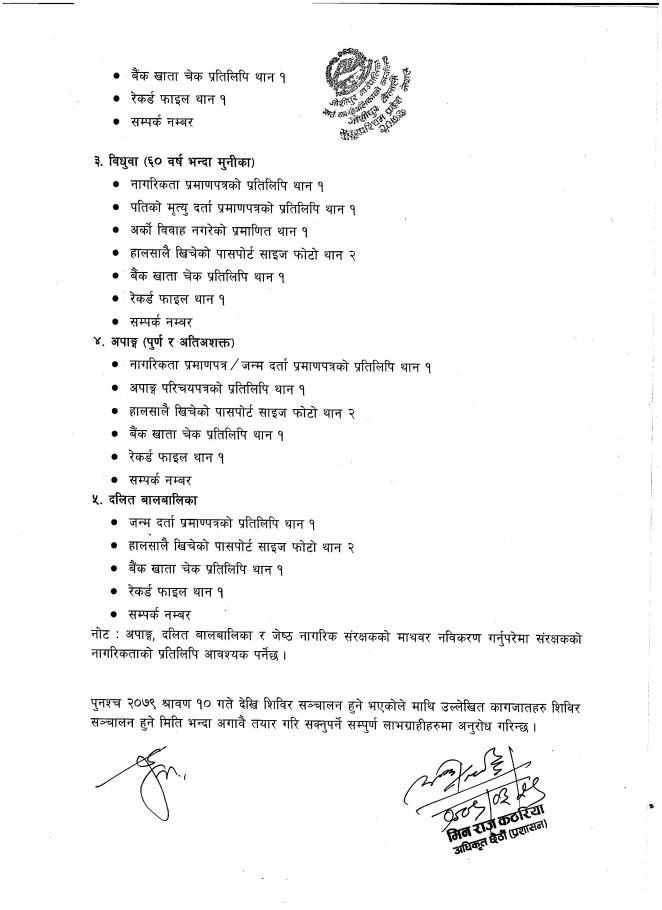 • बैंक खाता चेक प्रतिलिपि थान १
• रेकर्ड फाइल थान १
• सम्पर्क नम्बर
३. विधुवा (६० वर्ष भन्दा मुनीका)
• नागरिकता प्रमाणपत्रको प्रतिलिपि थान १
• पतिको मृत्यु दर्ता प्रमाणपत्रको प्रतिलिपि थान १
• अर्को विवाह नगरेको प्रमाणित थान १
• हालसालै खिचेको पासपोर्ट साइज फोटो थान २
• बैंक खाता चेक प्रतिलिपि थान १
• रेकर्ड फाइल थान १
• सम्पर्क नम्बर
४. अपाङ्ग (पुर्ण र अतिअशक्त)
• नागरिकता प्रमाणपत्र/जन्म दर्ता प्रमाणपत्रको प्रतिलिपि थान १
• अपाङ्ग परिचयपत्रको प्रतिलिपि थान १
• हालसालै खिचेको पासपोर्ट साइज फोटो थान २
• बैंक खाता चेक प्रतिलिपि थान १
• रेकर्ड फाइल थान १
• सम्पर्क नम्बर
५. दलित बालबालिका
• जन्म दर्ता प्रमाण्पत्रको प्रतिलिपि थान १
• हालसालै खिचेको पासपोर्ट साइज फोटो थान २
• बैंक खाता चेक प्रतिलिपि थान १
• रेकर्ड फाइल थान १
• सम्पर्क नम्बर
नोट : अपाङ्ग, दलित बालबालिका र जेष्ठ नागरिक संरक्षकको माथवर नविकरण गर्नुपरेमा संरक्षकको
नागरिकताको प्रतिलिपि आवश्यक पर्नेछ ।
पुनश्च २०७९ श्रावण १० गते देखि शिविर सञ्चालन हुने भएकोले माथि उल्लेखित कागजातहरु शिविर
सञ्चालन हुने मिति भन्दा अगावै तयार गरि सक्नुपर्ने सम्पुर्ण लाभग्राहीहरुमा अनुरोध गरिन्छ ।
मिन राज कठरिया
अधिकृत छैठौं (प्रशासन)